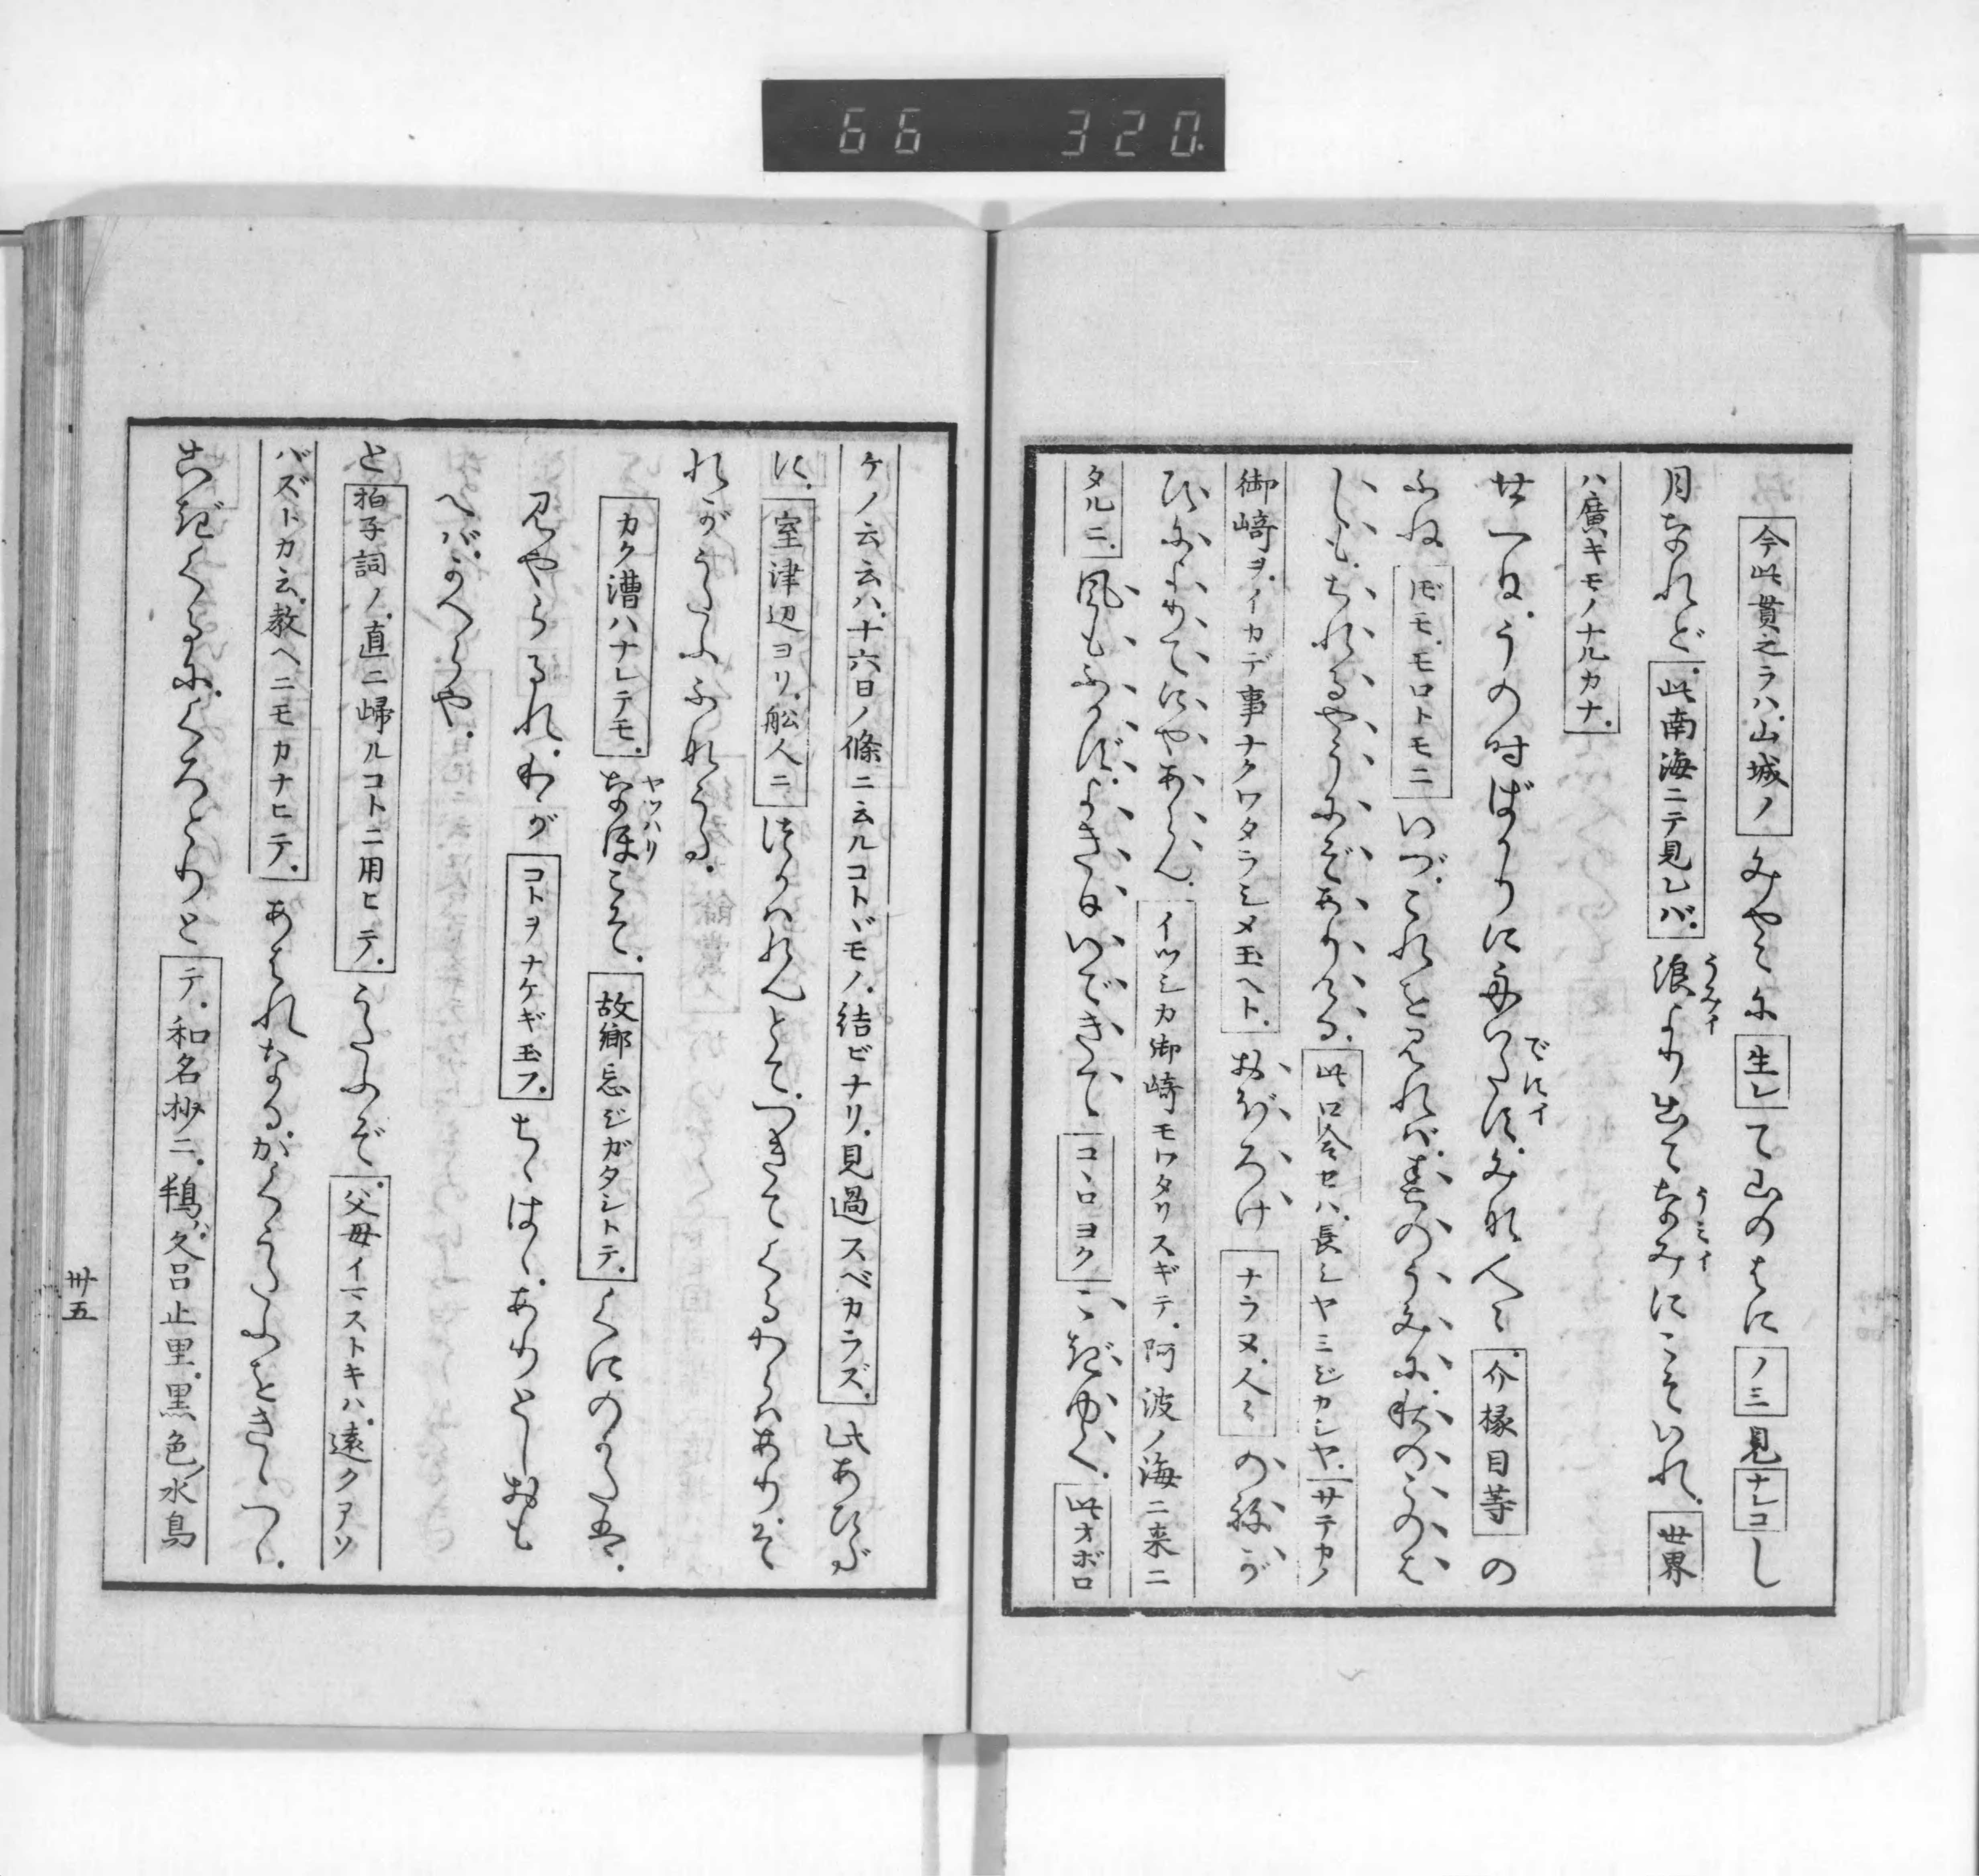 66 320.
今此貫之ラハ山城ノみやこに生レて山のはにノミ見ナレコし
月なれど此南海ニテ見レバ浪より出てなみにこそいれ世界
うみイ
うミイ
ハ廣キモノナルカナ
廿一日うの時ばかりに舟いだすみな人ミ介掾目等の
でにイ
ふねモロトモニいづこれを見れば春のうみに秋のこのは
しもちれるやうにぞありける此口合セハ長シヤミジカシヤサテカノ
御崎ヲイカデ事ナクワタラシメ玉ヘトおぼろけナラヌ人ミの移が
ひによりてにやあらんイツシカ御崎モワタリスギテ阿波ノ海ニ来ニ
タルニ風もふかずよき日いできてコヽロヨクこぎゆく此オボロ
ケノ云云ハ十六日ノ條ニ云ルコトバモノ結ビナリ見過スベカラズ此あひだ
に室津辺ヨリ舩人ニつかはれんとてつきてくるわらはありそ
れがうたふふなうた
カク漕ハナレテモなほこそ故郷忘ジガタシトテくにのかたは
ヤツハリ
見やらるれわがコトヲナケギ玉フちゝはゝありとしおも
へばかへらや
と拍子詞ノ直ニ歸ルコトニ用ヒテうたふぞ父母イマストキハ遠クアソ
バズトカ云教ヘニモカナヒテあはれなるかくうたふをきゝつゝ
こぎくるにくろとりとテ和名抄ニ久呂止里黒色水鳥
卅五